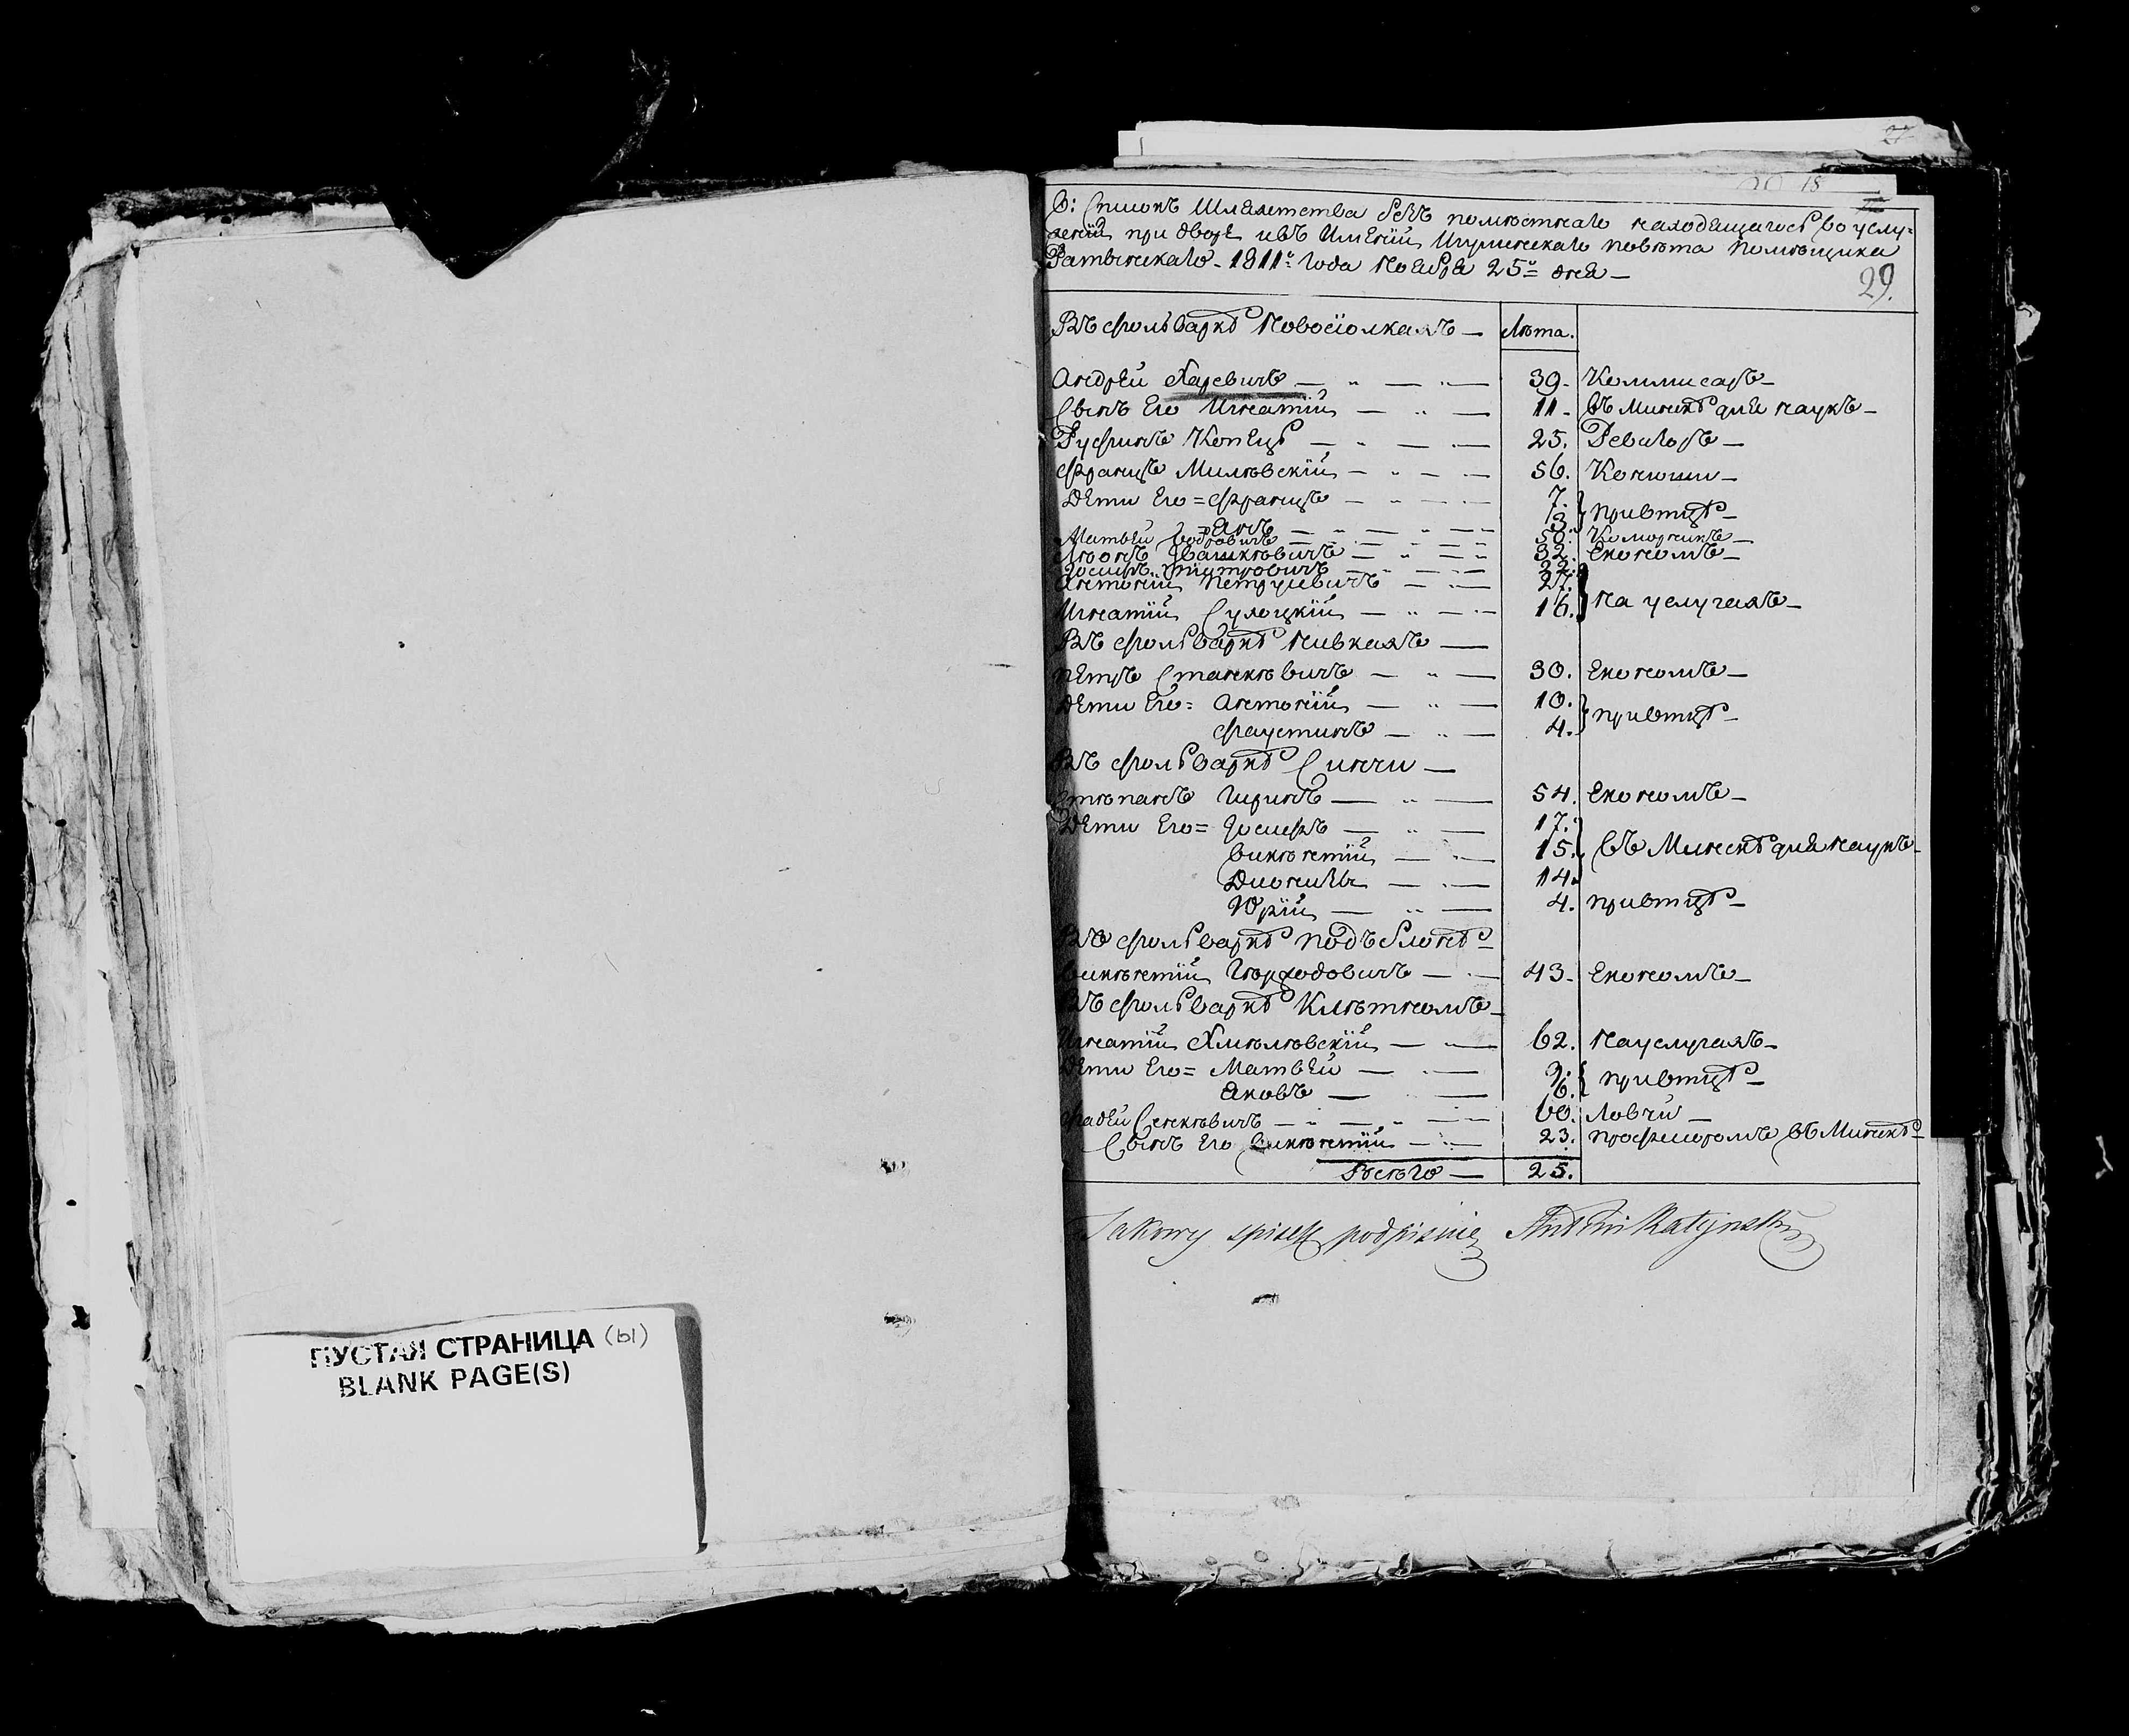 ПУСТАЯ СТРАНИЦА (ы)
BLANK PAGE(S)
27
18
В: Списокъ Шляхетства безъ поместнаго находящагось во услу-
жении при дворе и въ Имении Игуменскаго повета помещика
Ратынскаго - 1811го года Ноября 25го дня —
29.
Въ фольварке Новосіолкахъ — Лета.
Андрей Харевичъ — 39. Коммисаръ —
Сынъ Его Игнатій — 11 - въ Минске для наукъ —
Руфинъ Копець — 25. Ревизоръ —
Францъ Милевскій — 56. Конюши —
Дети Его = Францъ — 7. } при отце —
Янъ — 3.
Матвей — 50. Коморникъ —
Леонъ Ивашкевичъ — 32. Економъ —
Іосифъ
Антоній Петрусевичъ — 27. } на услугахъ —
Игнатій Сулоцкій — 16.
Въ фольварке Нивкахъ —
Петръ Станкевичъ — 30. Економъ —
Дети Его = Антоній — 10. } при отце —
Фаустинъ — 4.
Въ фольварке Синчи —
Степанъ Гиринъ — 54. Економъ —
Дети Его = Іосифъ — 17. } въ Минске для наукъ —
Викентій — 15.
Дионизы — 14.
Юрій — 4. при отце —
Въ фольварке Подъелоне —
Викентій Герходовичъ — 43. Економъ —
Въ фольварке Клетномъ —
Игнатій Хмелевскій — 62. На услугахъ —
Дети Его = Матвей — 9. } при отце —
Яковъ — 6.
Фадей Сенкевичъ — 60. Ловчи —
Сынъ Его Викентій — 23. профисоромъ въ Минске —
Всего — 25.
Takowy spisek podpisuię Antoni Ratynski